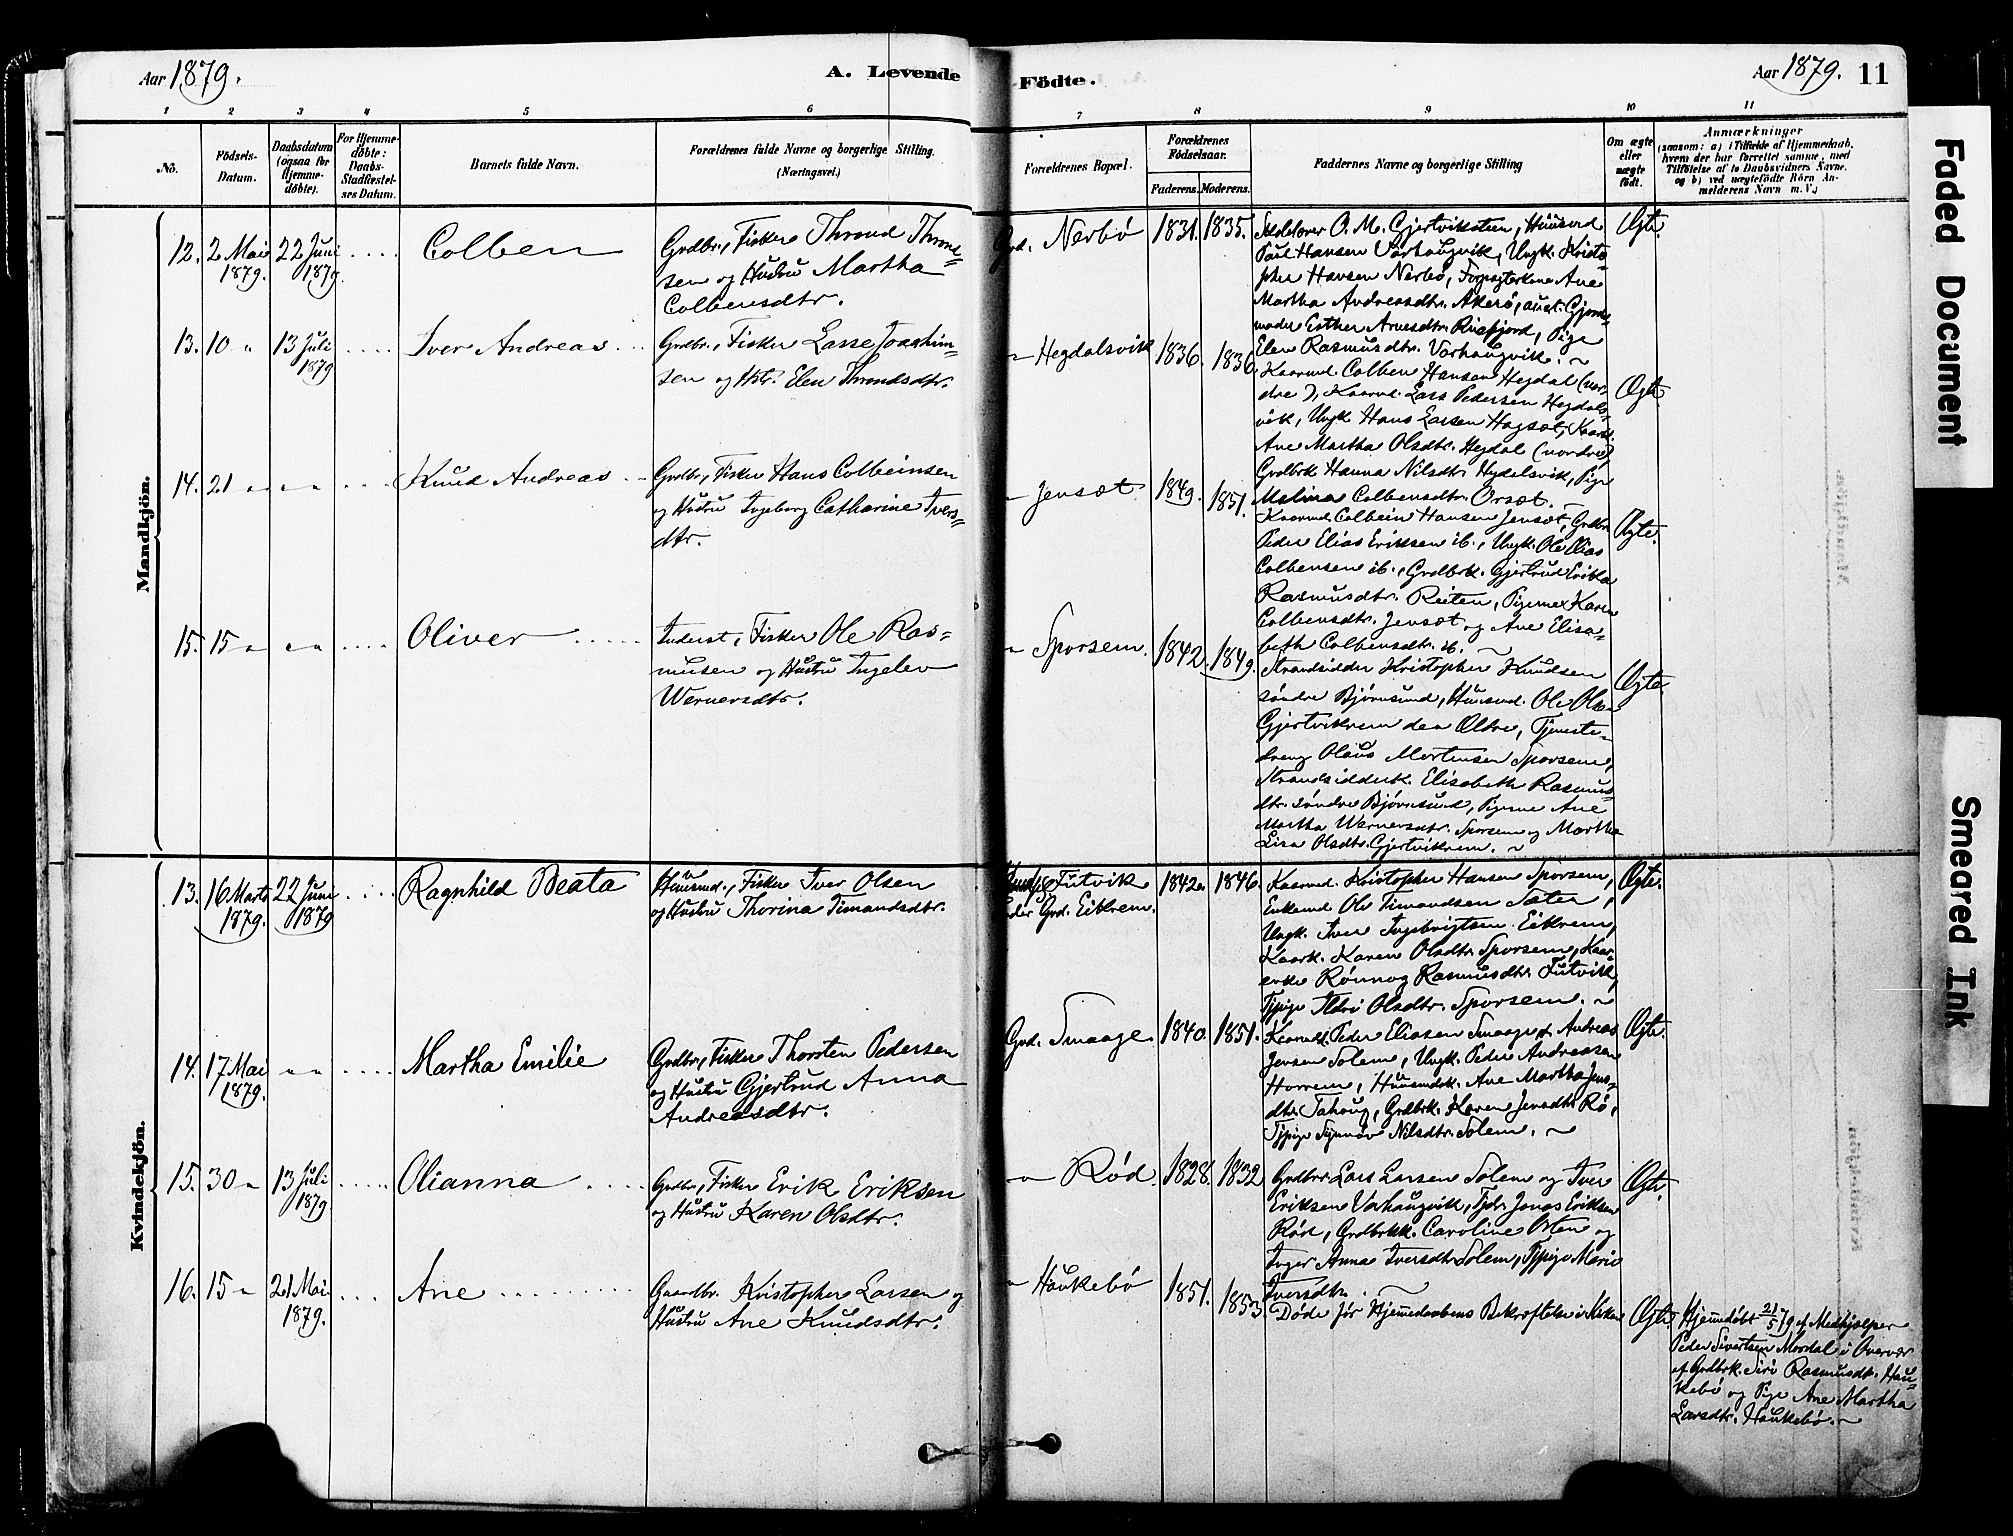 Aar 1879.
A. Levende
Födte.
Aar 1879. 11
1 2 3 4 5 6 7 8 9 10 11
No.
Födsels-Datum.
Daabsdatum (ogsaa for Hjemme-döbte).
For Hjemme-döbte: Daabs-Stadfæstel-ses Datum.
Barnets fulde Navn.
Forældrenes fulde Navne og borgerlige Stilling. (Næringsvei.)
Forældrenes Bopæl.
Forældrenes Födselsaar.
Faderens. Moderens.
Faddernes Navne og borgerlige Stilling
Om ægte eller uægte födt.
Anmærkninger
(saasom: a) i Tilfælde af Hjemmedaab, hvem der har forrettet samme, med Tilföielse af to Daabsvidners Navne, og b) ved uægtefödte Börn An-melderens Navn m. V.)
Mandkjön.
12. 2 Mai 1879. 22 Juni 1879. .... Colben
Grdbr., Fisker Thrond Thrond=
sen og Hustru Martha
Colbensdtr.
Grd. Nerbö 1831. 1835.
Sedelover O. M. Gjertvikstøen, Huusmd
Paul Hansen Varhaugvik, Ungk. Kristo=
pher Hansen Nerbö, Ane
Martha Andreasdtr. Akerö, Gjorde=
moder Esther Arnesdtr. Rüsfjord, Pige
Elen Rasmusdtr. Varhaugvik. ~
Ægte.
13. 10 " 13 Juli 1879 .... Iver Andreas ...
Grdbr., Fisker Lasse Joachim=
sen og Hstr. Elen Throndsdtr.
" Hegdalsvik 1836. 1836.
Kaarmd. Colben Hansen Hegdal (nor=
dre), Kaarmd. Lars Pedersen Hegdals=
vik, Ungk. Hans Larsen Hagsæt, Kaark.
Ane Martha Olsdtr. Hegdal (nordre),
Grdbrk Hanna Nilsdtr. Hegdalsvik, Pige
Malina Colbensdtr. Orsæt. ~
Ægte.
14. 21 " " " .... Knud Andreas ..
Grdbr., Fisker Hans Colbeinsen
og Hustru Ingeborg Catharine Ivers=
dtr.
" Jensæt. 1849. 1851.
Kaarmd. Colbein Hansen Jensæt, Grdbr.
Peder Elias Eriksen ib., Ungk. Ole Elias
Colbensen ib., Grdbrk. Gjertrud Erika
Rasmusdtr. Reiten, Pigerne Karen
Colbensdtr. Jensæt og Ane Elisa=
beth Colbensdtr. ib. ~
Ægte.
15. 15 " " " .... Oliver .....
Inderst, Fisker Ole Ras=
musen og Hustru Ingelev
Wernersdtr.
" Sporsem. 1842. 1849.
Strandsidder Kristopher Knudsen
søndre Bjørnsund, Huusmd. Ole Olsen
Gjertvikrem den Ældre, Tjeneste=
dreng Olaus Mortensen Sporsem,
Strandsidderk. Elisabeth Rasmus=
dtr. søndre Bjørnsund, Pigerne Ane
Martha Wernersdtr. Sporsem og Martha
Lisa Olsdtr. Gjertvikrem. ~
Ægte
Kvindekjön.
13. 16 Marts 1879. 22 Juni 1879 .... Ragnhild Beata
Huusmd., Fisker Iver Olsen
og Hustru Thorina Timandsdtr.
Futvik
under Grd. Eikrem. 1842. 1846.
Kaarmd. Kristopher Hansen Sporsem,
Enkemd Ole Timandsen Sæter,
Ungk. Iver Ingebrigtsen Eikrem,
Kaark. Karen Olsdtr. Sporsem, Kaar=
enke Rønnog Rasmusdtr. Futvik,
Tjpige Ildri Olsdtr. Sporsem. ~
Ægte.
14. 17 Mai 1879. " " .... Martha Emilie
Grdbr., Fisker Thorsten Pedersen
og Hustru Gjertrud Anna
Andreasdtr.
Grd. Smaage. 1840. 1851.
Kaarmd. Peder Eliasen Smaage og Andreas
Jensen Solem, Ungk. Peder Andreasen
Horrem, Huusmdsk. Ane Martha Jens=
dtr. Tahaug, Grdbrk. Karen Jensdtr. Rö,
Tjpige Synnöv Nilsdtr. Solem. ~
Ægte.
15. 30 " 13 Juli 1879. ..... Olianna ....
Grdbr., Fisker Erik Eriksen
og Hustru Karen Olsdtr.
" Rød 1828. 1832
Grdbr. Lars Larsen Solem og Iver
Eriksen Varhaugvik, Tjdr. Jonas Eriksen
Rød, Grdbrkk. Caroline Osten og
Inger Anna Iversdtr. Solem, Tjpige Marie
Iversdtr. ~
Ægte.
16. 15 " 21 Mai 1879. .... Ane .........
Gaardbr. Kristopher Larsen og
Hustru Ane Knudsdtr.
" Haukebö 1851. 1853.
Døde før Hjemmedaabens Bekræftelse i Kirken
Ægte.
Hjemmdøbt 21/5 79 af Medhjælper
Peder Sivertsen Mordal i Overvær
af Grdbrk. Siri Rasmusdtr. Hau=
kebö og Pige Ane Martha
Larsdtr. Haukebö. ~
Faded Document
Smeared Ink